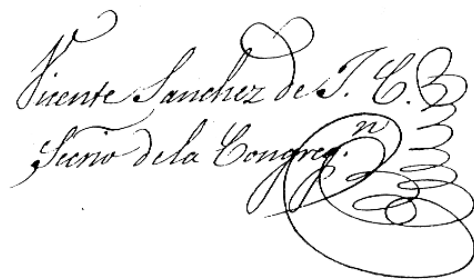 Vicente Sanchez de J. C.
Secrio de la Congreg.n